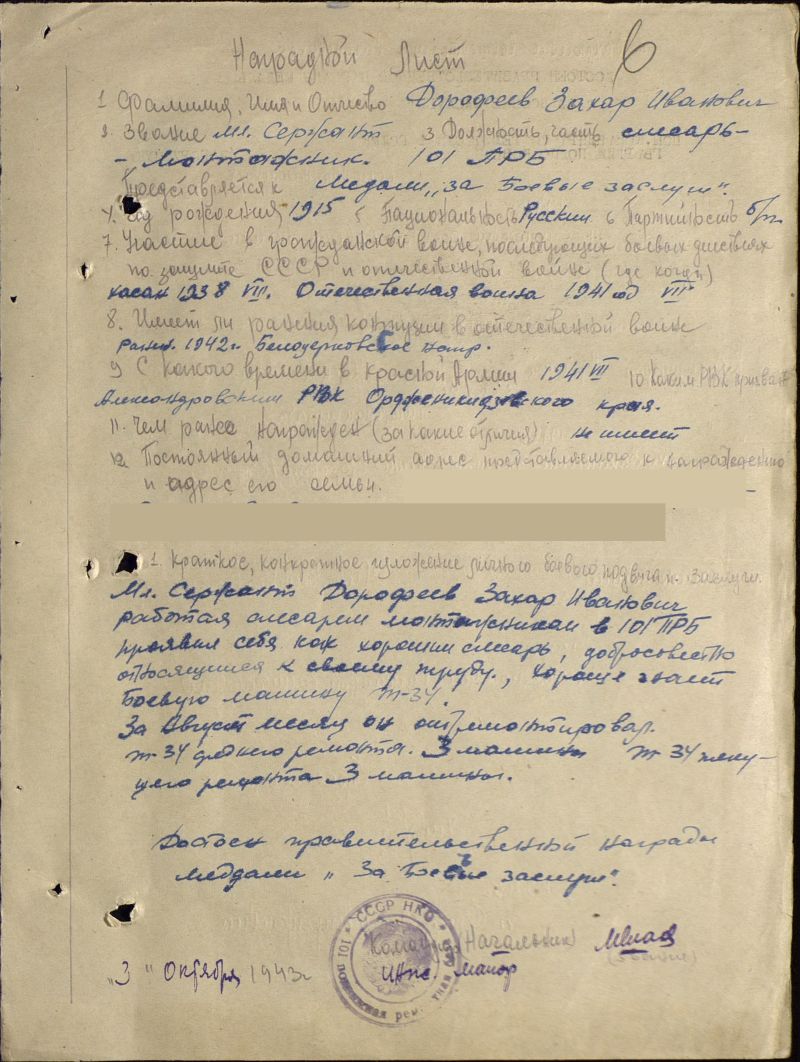 Наградной Лист
6
1 Фамилия, Имя и Отчество Дорофеев Захар Иванович
2. Звание Мл. Сержант 3 Должность, часть слесарь-
- монтажник. 101 ПРБ
Представляется к Медали „За Боевые заслуги".
4. Год рождения 1915 5 Национальность Русский 6 Партийность б/п
7. Участие в гражданской войне, последующих боевых действиях
по защите СССР и отечественной войне (где когда)
Хасан 1938 VIII. Отечественная война 1941 год VIII
8. Имеет ли ранения контузии в отечественной войне
ранен. 1942 г. Белоцерковское напр.
9 С какого времени в красной Армии 1941 VII 10 Каким РВК призван
Александровским РВК Орджоникидзевского края.
11. Чем ранее награжден (за какие отличия) не имеет
12 Постоянный домашний адрес представляемого к награждению
и адрес его семьи.
1. Краткое, конкретное изложение личного боевого подвига и заслуги.
Мл. Сержант Дорофеев Захар Иванович
работая слесарем монтажником в 101 ПРБ
проявил себя как хороший слесарь, добросовестно
относящийся к своему труду, хорошо знает
Боевую машину Т-34.
За Август месяц он отремонтировал
Т-34 среднего ремонта. 3 машины Т 34 теку-
щего ремонта 3 машины.
Достоен правительственной награды
медали „За Боевые заслуги".
СССР НКО
101 подвижная рем
Командир (Начальник)
„3" Октября 1943 г Инж. майор
(звание)